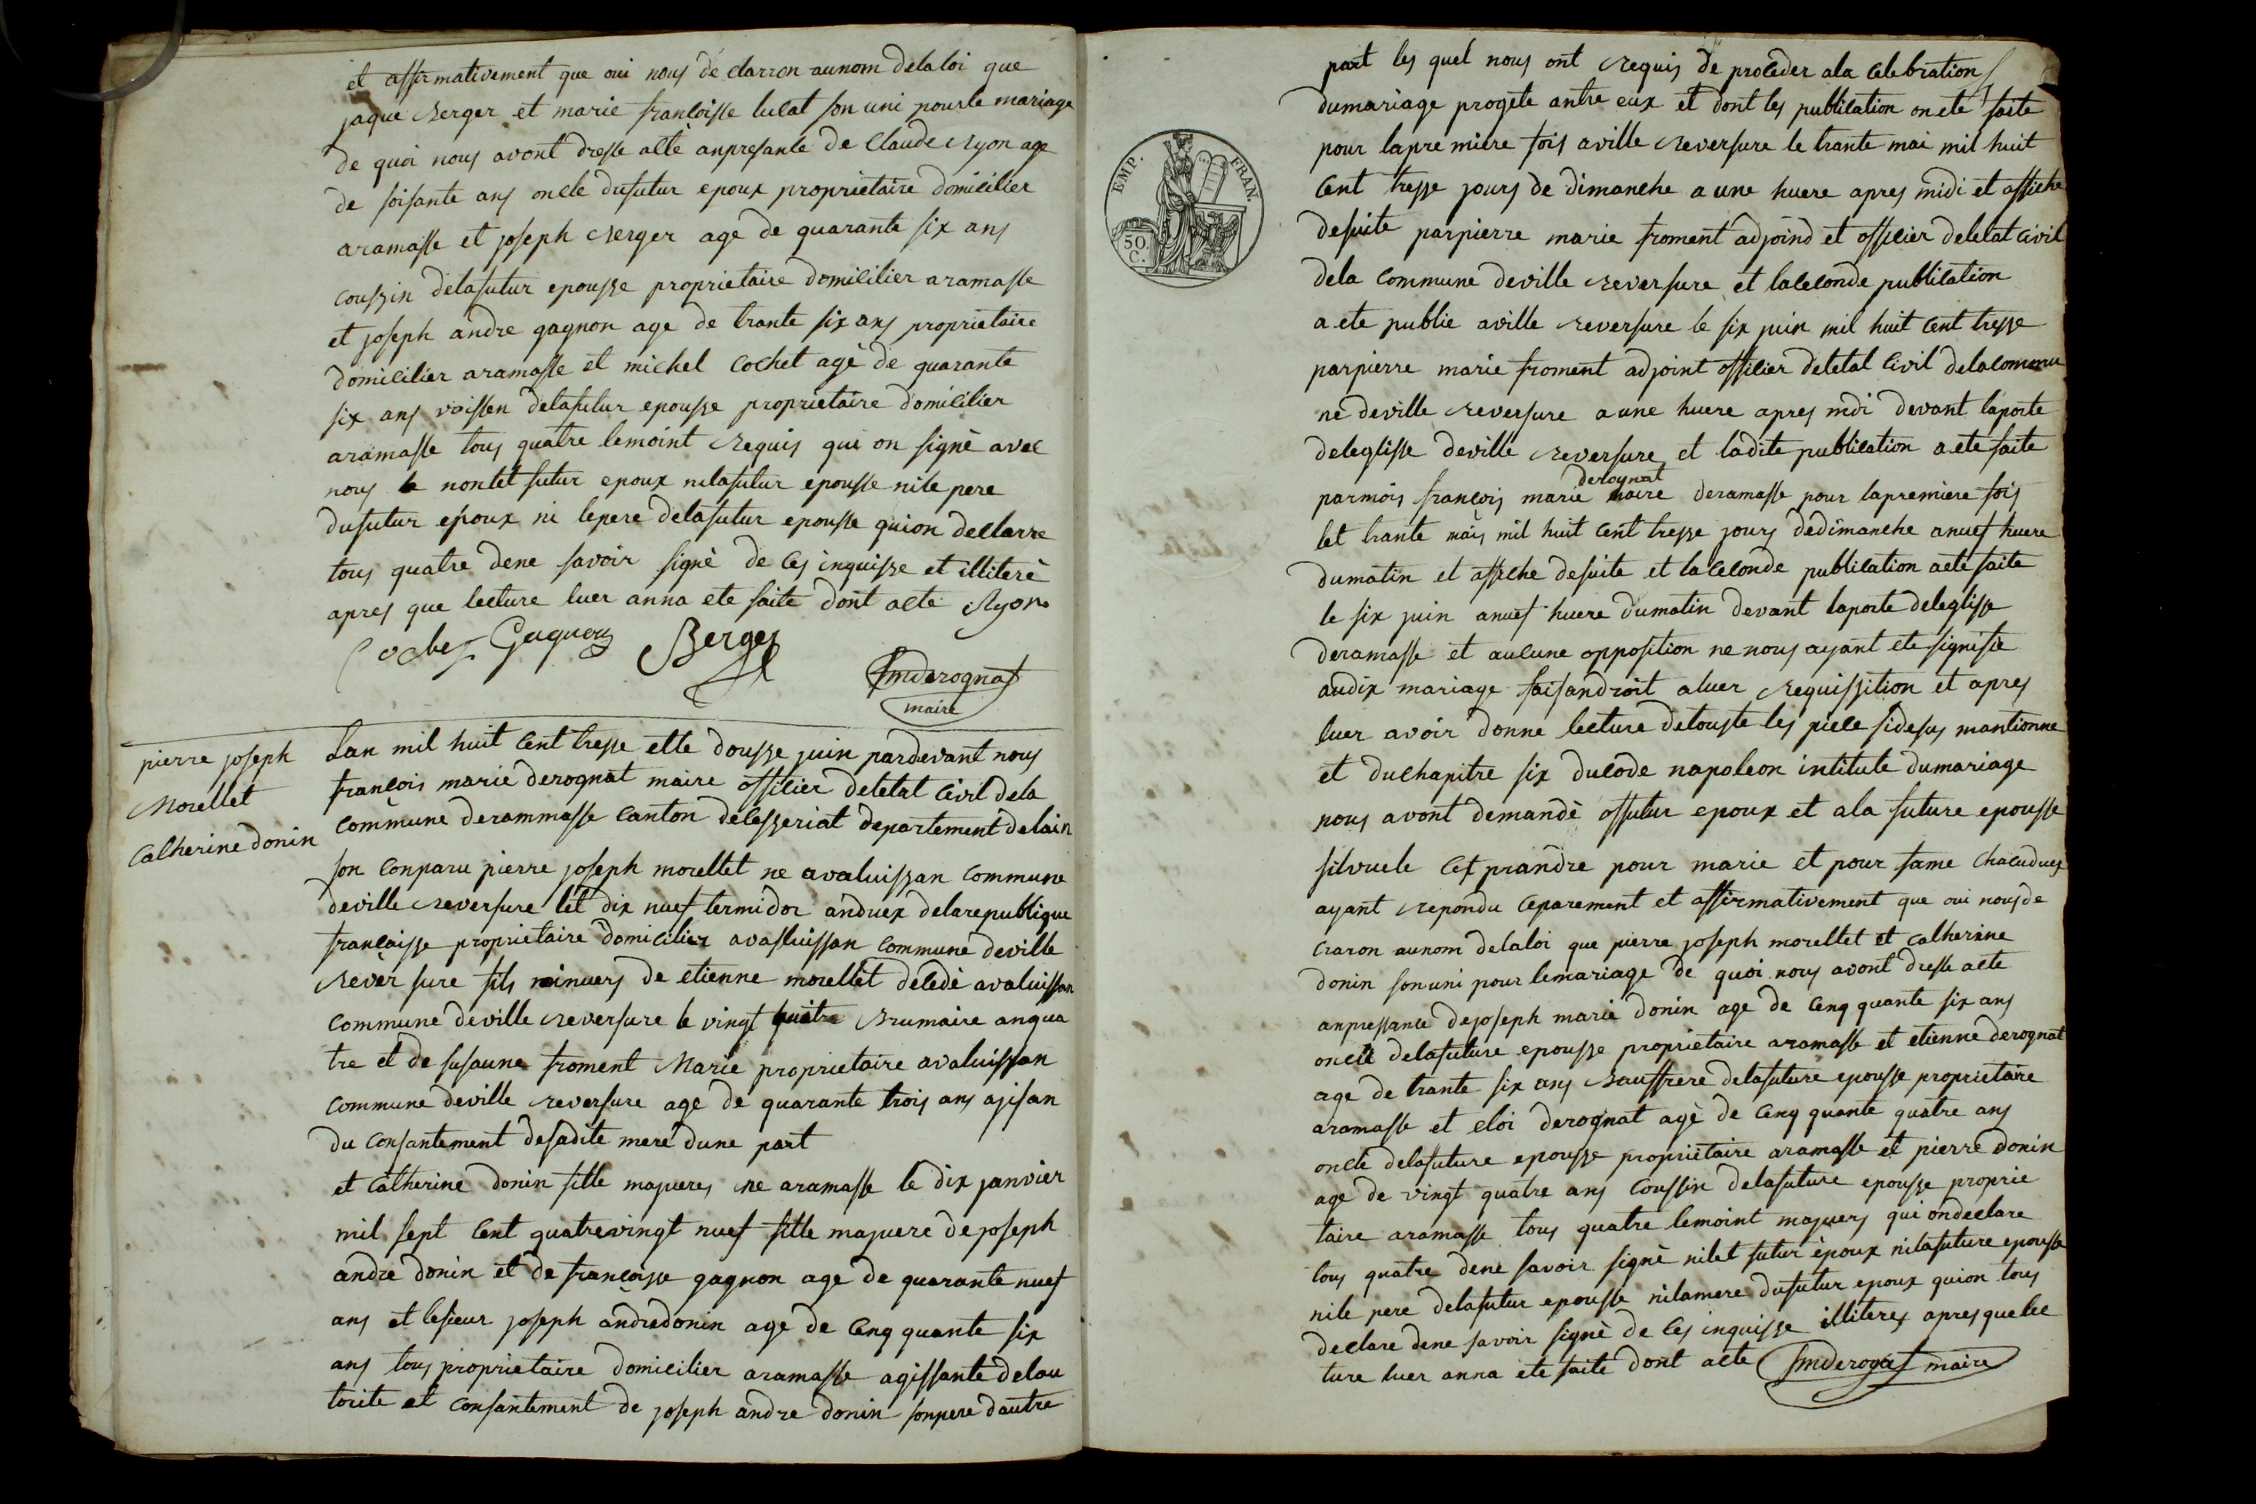 et affirmativement que oui nous de clarron aunom delaloi que
jaque Berger et marie francoisse lucat son uni pourle mariage
de quoi nous avont dresse acte anpresante de Claude Ryon age
de soisante ans oncle dufutur epoux proprietaire domicilier
aramasse et joseph Berger age de quarante six ans
coussin delafutur epousse proprietaire domicilier aramasse
et joseph andre gagnon age de trante six ans proprietaire
domicilier aramasse et michel cochet agé de quarante
six ans voissen delafutur epousse proprietaire domicilier
aramasse tous quatre temoint Requis qui on signè avec
nous le nontet futur epoux nilafutur epousse nile pere
dufutur epoux ni lepere delafutur epousse quion declarre
tous quatre dene savoir signè de ces inquisse et illiterè
apres que lecture luer anna ete faite dont acte Ryon
Cochet Gagnon Berger
fmderognat
maire
pierre joseph
Morellet
Catherine donin
Lan mil huit cent tresse elle dousse juin pardevant nous
francois marie derognat maire officier deletat civil dela
commune derammasse canton decesseriat departement delain
son conparu pierre joseph morellet ne avaluissan commune
deville Reversure let dix nuef termidor anduex delarepublique
francaisse proprietaire domicilier avasluissan commune deville
Rever sure fils minuers de etienne morellet decedè avaluissan
commune deville Reversure le vingt quatre Brumaire anqua
tre et de susaune froment Marie proprietaire avaluissan
commune deville Reversure age de quarante trois ans ajisan
du consantement desadite mere dune part
et Catherine donin fille majueres ne aramasse le dix janvier
mil sept cent quatrevingt nuef fille majuere dejoseph
andre donin et de francoisse gagnon age de quarante nuef
ans et lesieur joseph andredonin age de cenq quante six
ans tous proprietaire domicilier aramasse agissante delau
torite et consantement de joseph andre donin sonpere dautre
EMP. FRAN.
50.
C.
part les quel nous ont Requis de proceder ala celebration
dumariage progete antre eux et dont les publication onete faite
pour lapre miere fois aville Reversure le trante mai mil huit
cent tresse jours de dimanche a une huere apres midi et affiche
desuite parpierre marie froment adjoind et officier deletat civil
dela commune deville Reversure et laceconde publication
a ete publie aville Reversure le six juin mil huit cent tresse
parpierre marie froment adjoint officier deletat civil delacommu
ne deville Reversure a une huere apres mdi devant laporte
deleglisse deville Reversure et ladite publication a ete faite
derognat
parmois francois marie maire deramasse pour lapremiere fois
let trante mais mil huit cent tresse jours dedimanche anuef huere
dumatin et affiche desuite et laceconde publication aete faite
le six juin anuef huere dumatin devant laporte deleglisse
deramasse et aucune opposition ne nous ayant ete signifie
audix mariage faisandroit aluer Requissition et apres
luer avoir donne lecture detouste les piece sidesus mantionne
et duchapitre six ducode napoleon intitute dumariage
nous avont demandè offutur epoux et ala future epousse
silvuele cet prandre pour marie et pour fame chacuduex
ayant Repondu ceparement et affirmativement que oui nousde
craron aunom delaloi que pierre joseph morellet et catherine
donin sonuni pour lemariage de quoi nous avont dresse acte
anpressance dejoseph marie donin age de cenq quante six ans
oncle delafuture epousse proprietaire aramasse et etienne derognat
age de trante six ans Bauffrere delafuture epousse proprietaire
aramasse et eloi derognat agè de cenq quante quatre ans
oncle delafuture epousse proprietaire aramasse et pierre donin
age de vingt quatre ans Coussin delafuture epousse proprie
taire aramasse tous quatre temoint majuers qui ondeclare
tous quatre dene savoir signè nilet futur èpoux nilafuture epousse
nile pere delafutur epousse nilamere dufutur epoux quion tous
declare dene savoir signè de ces inquisse illiteres apresquelec
ture luer anna ete faite dont acte fmderognat maire